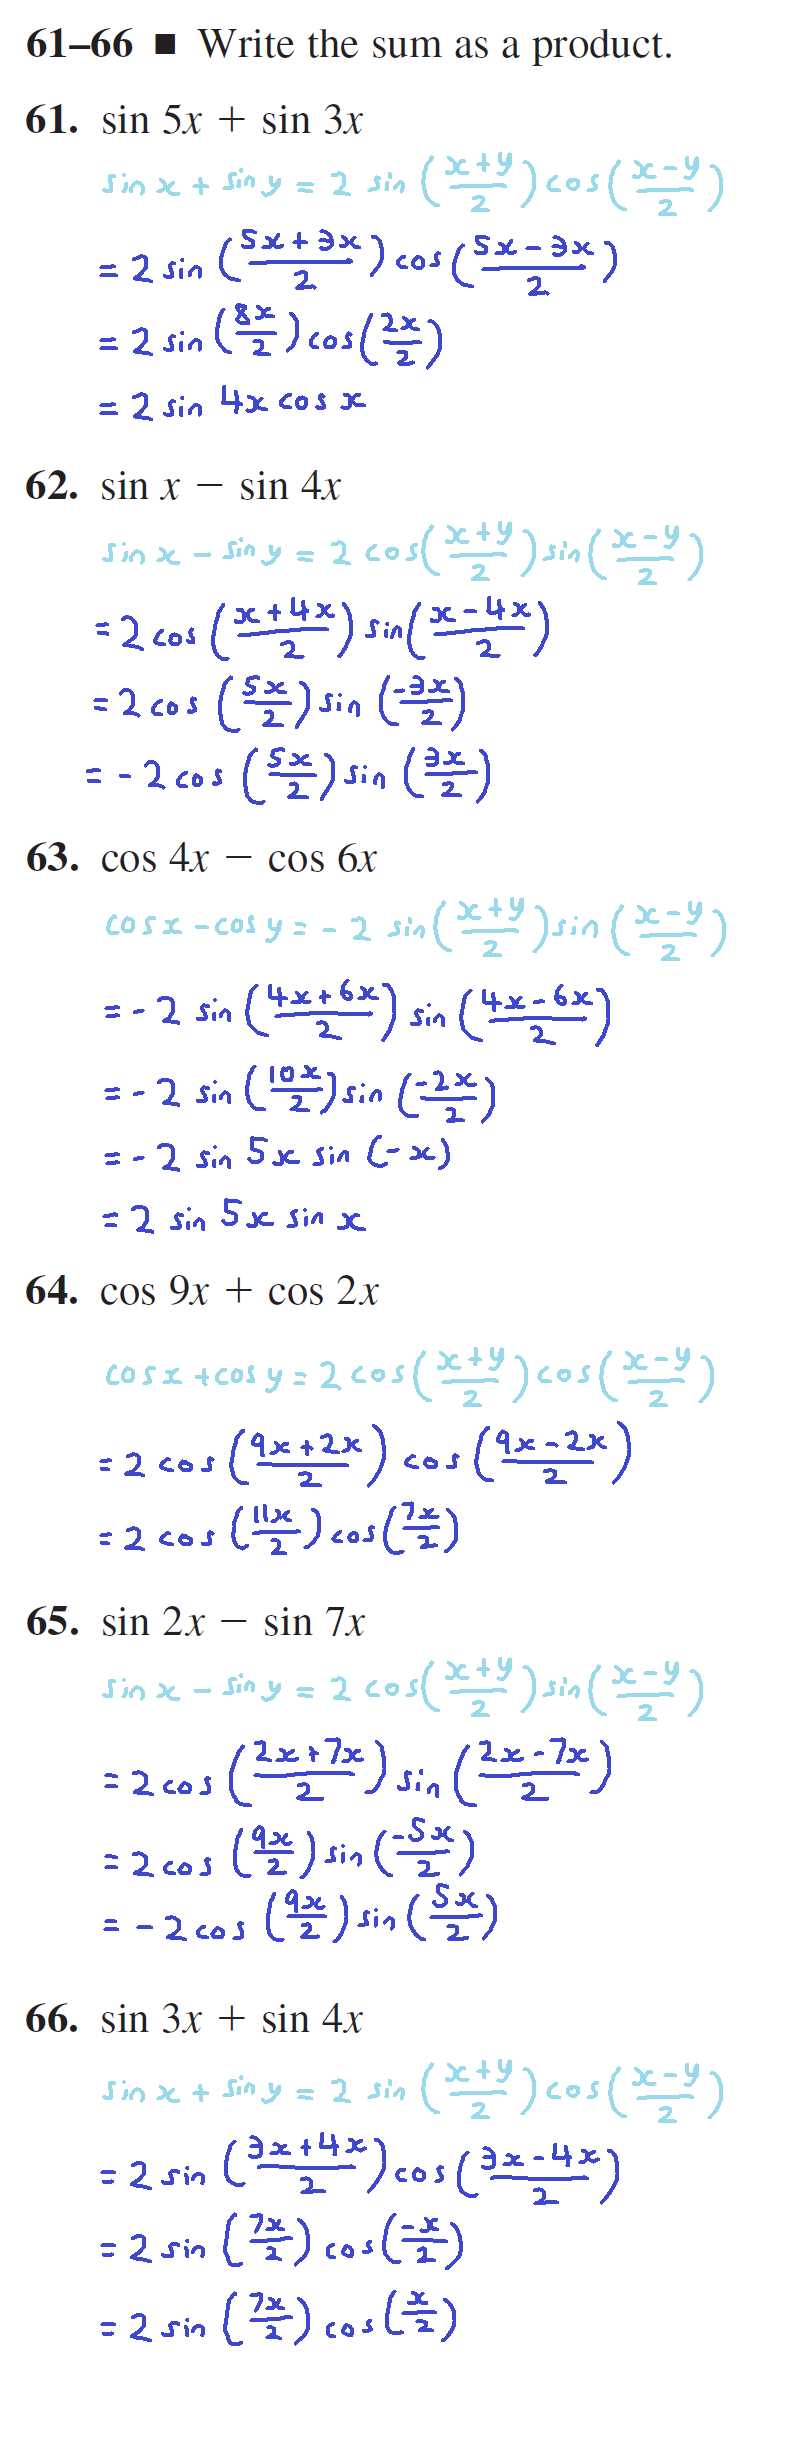 61–66 ■ Write the sum as a product.
61. sin 5x + sin 3x
sin x + sin y = 2 sin ((x+y)/2) cos ((x-y)/2)
= 2 sin ((5x+3x)/2) cos ((5x-3x)/2)
= 2 sin (8x/2) cos (2x/2)
= 2 sin 4x cos x
62. sin x − sin 4x
sin x - sin y = 2 cos ((x+y)/2) sin ((x-y)/2)
= 2 cos ((x+4x)/2) sin ((x-4x)/2)
= 2 cos (5x/2) sin (-3x/2)
= - 2 cos (5x/2) sin (3x/2)
63. cos 4x − cos 6x
cos x - cos y = - 2 sin ((x+y)/2) sin ((x-y)/2)
= - 2 sin ((4x+6x)/2) sin ((4x-6x)/2)
= - 2 sin (10x/2) sin (-2x/2)
= - 2 sin 5x sin (-x)
= 2 sin 5x sin x
64. cos 9x + cos 2x
cos x + cos y = 2 cos ((x+y)/2) cos ((x-y)/2)
= 2 cos ((9x+2x)/2) cos ((9x-2x)/2)
= 2 cos (11x/2) cos (7x/2)
65. sin 2x − sin 7x
sin x - sin y = 2 cos ((x+y)/2) sin ((x-y)/2)
= 2 cos ((2x+7x)/2) sin ((2x-7x)/2)
= 2 cos (9x/2) sin (-5x/2)
= - 2 cos (9x/2) sin (5x/2)
66. sin 3x + sin 4x
sin x + sin y = 2 sin ((x+y)/2) cos ((x-y)/2)
= 2 sin ((3x+4x)/2) cos ((3x-4x)/2)
= 2 sin (7x/2) cos (-x/2)
= 2 sin (7x/2) cos (x/2)